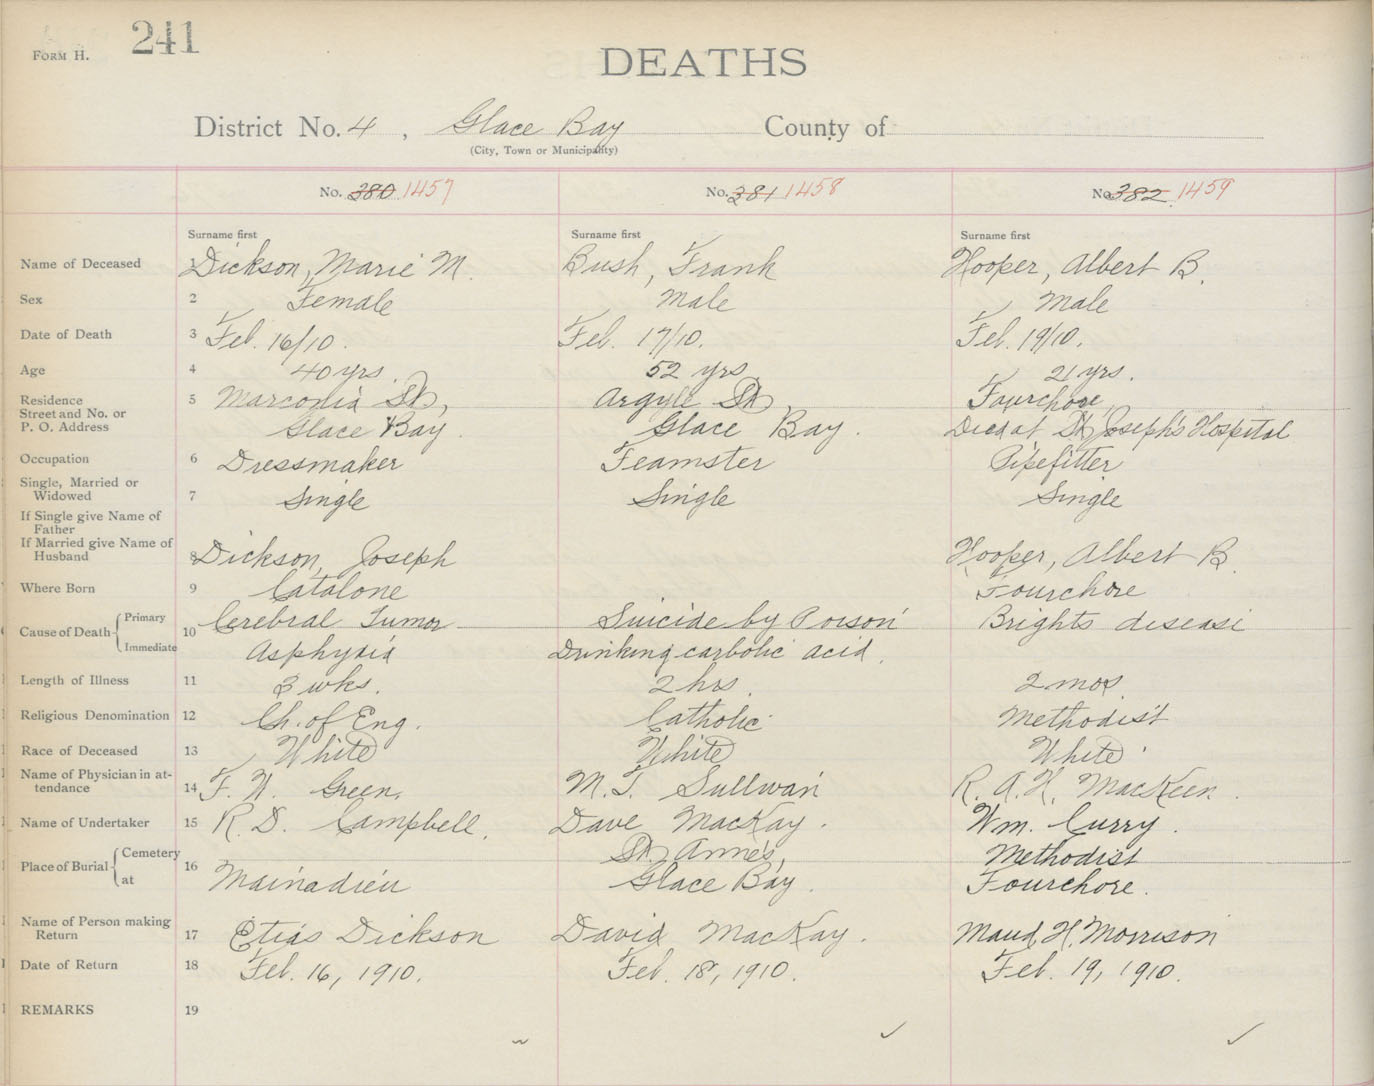 FORM H.
241
DEATHS
District No. 4, Glace Bay County of
(City, Town or Municipality)
No. 380 1457 No. 381 1458 No. 382 1459
Surname first Surname first Surname first
Name of Deceased 1 Dickson, Marie M. Bush, Frank Hooper, Albert B.
Sex 2 Female Male Male
Date of Death 3 Feb. 16/10. Feb. 17/10. Feb. 19/10.
Age 4 40 yrs. 52 yrs. 21 yrs.
Residence 5 Marconia St, Argyle St, Fourchore,
Street and No. or
P. O. Address Glace Bay Glace Bay. Died at St Joseph's Hospital
Occupation 6 Dressmaker Teamster Pipefitter
Single, Married or
Widowed 7 Single Single Single
If Single give Name of
Father
If Married give Name of
Husband 8 Dickson, Joseph Hooper, Albert B.
Where Born 9 Catalone Fourchore
Cause of Death Primary 10 Cerebral Tumor Suicide by Poison Brights disease
Immediate Asphyxia Drinking carbolic acid.
Length of Illness 11 3 wks. 2 hrs. 2 mos.
Religious Denomination 12 Ch. of Eng. Catholic Methodist
Race of Deceased 13 White White White
Name of Physician in at-
tendance 14 F. W. Green. M. T. Sullivan R. A. H. MacKeen.
Name of Undertaker 15 R. D. Campbell. Dave MacKay. Wm. Curry.
Place of Burial Cemetery 16 St, Anne's, Methodist
at Mainadieu Glace Bay. Fourchore.
Name of Person making
Return 17 Dickson David MacKay. Maud H. Morrison
Date of Return 18 Feb. 16, 1910. Feb. 18, 1910. Feb. 19, 1910.
REMARKS 19